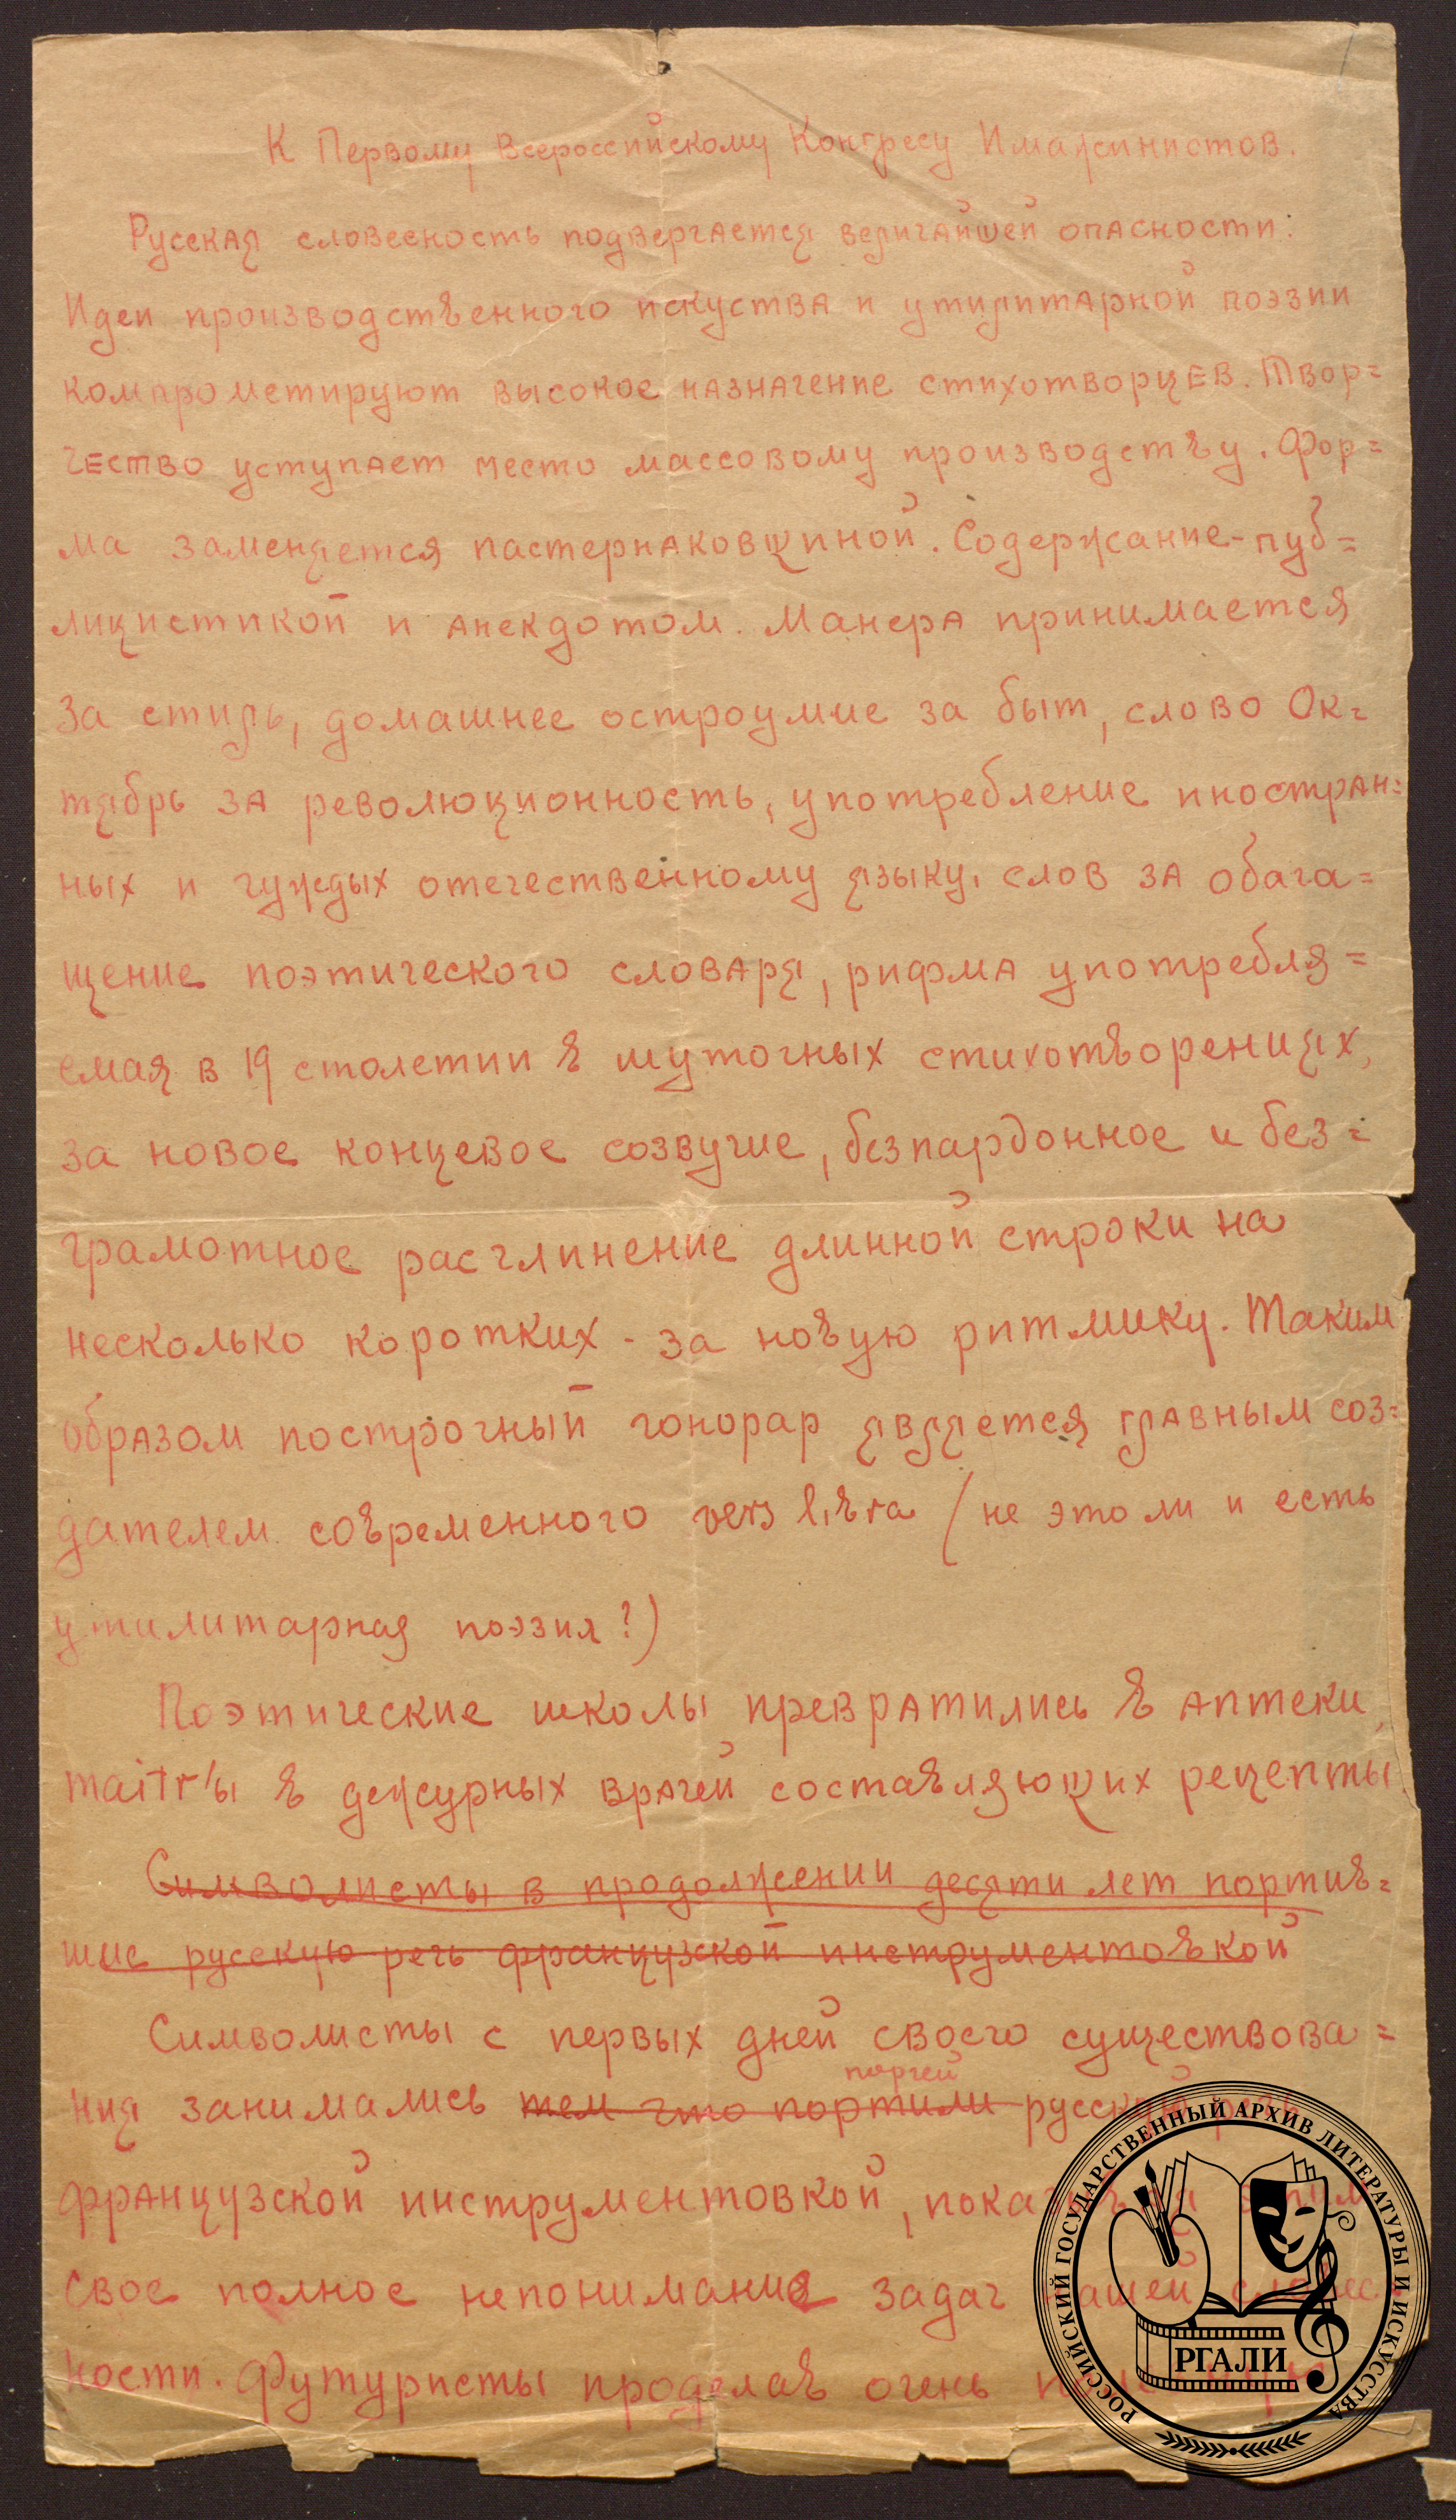 К Первому Всероссийскому Конгресу Имажинистов.
Русская словесность подвергается величайшей опасности:
Идеи производственного искуства и утилитарной поэзии
компрометируют высокое назначение стихотворцев. Твор=
чество уступает место массовому производству. Фор=
ма заменяется пастернаковщиной. Содержание-пуб=
лицистикой и анекдотом. Манера принимается
за стиль, домашнее остроумие за быт, слово Ок=
тябрь за революционность, употребление иностран=
ных и чуждых отечественному языку, слов за обага=
щение поэтического словаря, рифма употребля=
емая в 19 столетии в шуточных стихотворениях,
за новое концевое созвучие, безпардонное и без=
грамотное расчлинение длинной строки на
несколько коротких - за новую ритмику. Таким
образом построчный гонорар является главным соз=
дателем современного vers libra (не это ли и есть
утилитарная поэзия?)
Поэтические школы превратились в аптеки,
maitr'ы в дежурных врачей составляющих рецепты.
Символисты в продолжении десяти лет портив=
шие русскую речь французской инструментовкой
Символисты с первых дней своего существова=
порчей
ния занимались тем что портили русской
французской инструментовкой,
свое полное непонимание задач нашей
ности. Футуристы проделав очень
РОССИЙСКИЙ ГОСУДАРСТВЕННЫЙ АРХИВ ЛИТЕРАТУРЫ И ИСКУССТВА
РГАЛИ